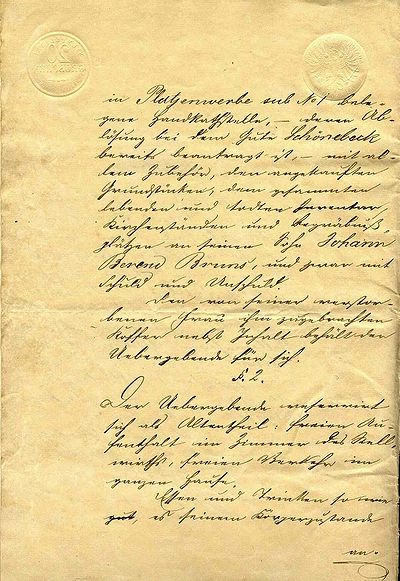 in Platzenwerbe sub No 1 bele-
gene Handkathstelle, – deren Ab-
lösung bei dem Gute Schönebeck
bereits beantragt ist, – mit al-
lem Zubehör, den angekauften
Grundstücken, dem gesammten
lebenden und todten Inventar,
Kirchenständen und Begräbniß-
plätzen an seinen Sohn Johann
Berend Bruns, und zwar mit
Schuld und Unschuld.
Den von seiner verstor-
benen Frau ihm zugebrachten
Koffer nebst Inhalt behält der
Uebergebende für sich.
§. 2.
Der Uebergebende reservirt
sich als Altentheil: freien Au-
fenthalt im Zimmer des Stell-
wirths, freien Verkehr im
ganzen Hause.
Essen und Trinken so wie
es seinem Körperzustande
an-